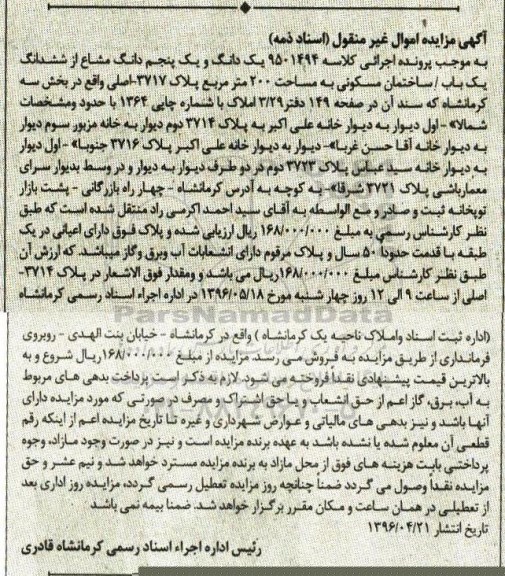 آگهی مزایده اموال غیر منقول (اسناد ذمه)
به موجب پرونده اجرائی کلاسه ۹۵۰۱۴۹۴ یک دانگ و یک پنجم دانگ مشاع از ششدانگ
یک باب / ساختمان مسکونی به مساحت ۲۰۰ متر مربع پلاک ۳۷۱۷-اصلی واقع در بخش سه
کرمانشاه که سند آن در صفحه ۱۴۹ دفتر ۳/۲۹ املاک با شماره چاپی ۱۳۶۴ با حدود ومشخصات
شمالا» - اول دیوار به دیوار خانه علی اکبر به پلاک ۳۷۱۴ دوم دیوار به خانه مزبور سوم دیوار
به دیوار خانه آقا حسن غربا»- دیوار به دیوار خانه علی اکبر پلاک ۳۷۱۶ جنوبا» - اول دیوار
به دیوار خانه سید عباس پلاک ۳۷۲۳ دوم در دو طرف دیوار به دیوار و در وسط بدیوار سرای
معمارباشی پلاک ۳۷۲۱ شرقا»- به کوچه به آدرس کرمانشاه - چهار راه بازرگانی - پشت بازار
توپخانه ثبت و صادر و مع الواسطه به آقای سید احمد اکرمی راد منتقل شده است که طبق
نظر کارشناس رسمی به مبلغ ۱۶۸/۰۰۰/۰۰۰ ریال ارزیابی شده و پلاک فوق دارای اعیانی در یک
طبقه با قدمت حدوداً ۵۰ سال و پلاک مرقوم دارای انشعابات آب وبرق وگاز میباشد. که ارزش آن
طبق نظر کارشناس مبلغ ۱۶۸/۰۰۰/۰۰۰ریال می باشد و ومقدار فوق الاشعار در پلاک ۳۷۱۴-
اصلی از ساعت ۹ الی ۱۲ روز چهار شنبه مورخ ۱۳۹۶/۰۵/۱۸ در اداره اجراء اسناد رسمی کرمانشاه
ParsNamadData
(اداره ثبت اسناد واملاک ناحیه یک کرمانشاه ) واقع در کرمانشاه - خیابان بنت الهدی - روبروی
فرمانداری از طریق مزایده به فروش می رسد. مزایده از مبلغ ۱۶۸/۰۰۰/۰۰۰ریال شروع و به
بالاترین قیمت پیشنهادی نقداً فروخته می شود. لازم به ذکر است پرداخت بدهی های مربوط
به آب، برق، گاز اعم از حق انشعاب و یا حق اشتراک و مصرف در صورتی که مورد مزایده دارای
آنها باشد و نیز بدهی های مالیاتی و عوارض شهرداری و غیره تا تاریخ مزایده اعم از اینکه رقم
قطعی آن معلوم شده یا نشده باشد به عهده برنده مزایده است و نیز در صورت وجود مازاد، وجوه
پرداختی بابت هزینه های فوق از محل مازاد به برنده مزایده مسترد خواهد شد و نیم عشر و حق
مزایده نقداً وصول می گردد ضمناً چنانچه روز مزایده تعطیل رسمی گردد، مزایده روز اداری بعد
از تعطیلی در همان ساعت و مکان مقرر برگزار خواهد شد. ضمنا بیمه نمی باشد
تاریخ انتشار ۱۳۹۶/۰۴/۲۱
رئیس اداره اجراء اسناد رسمی کرمانشاه قادری